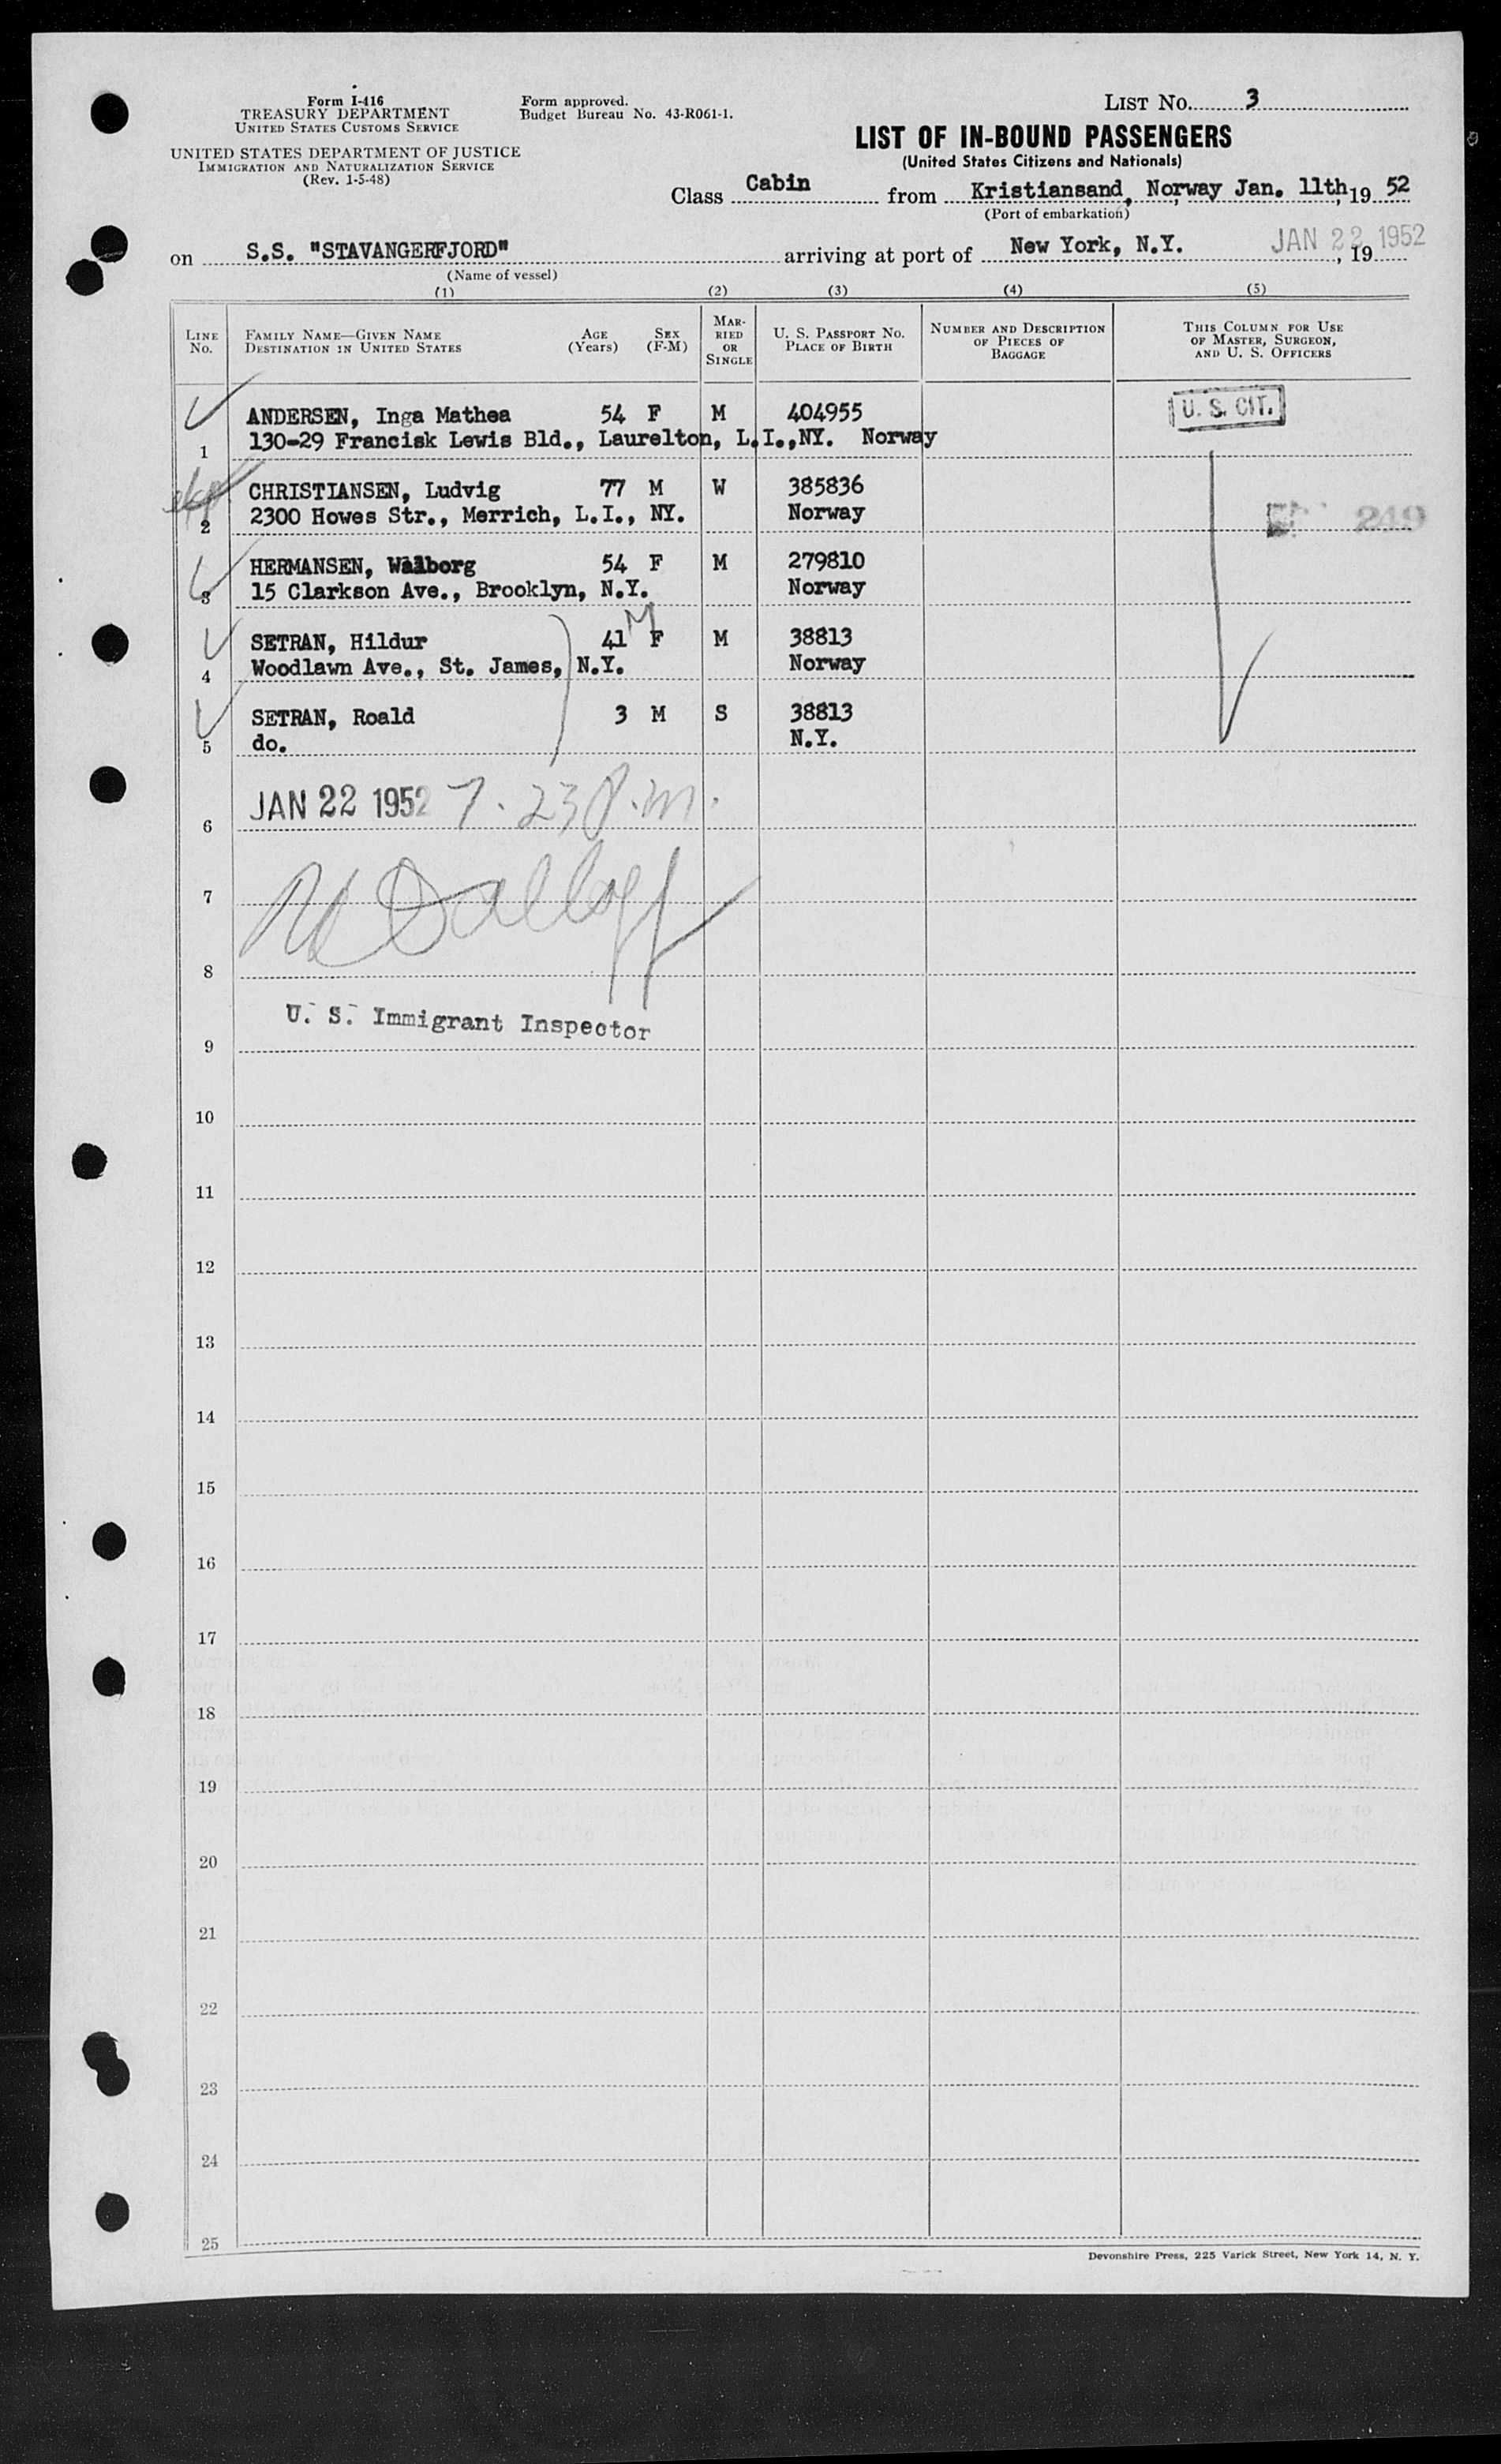 Form I-416
TREASURY DEPARTMENT
UNITED STATES CUSTOMS SERVICE
UNITED STATES DEPARTMENT OF JUSTICE
IMMIGRATION AND NATURALIZATION SERVICE
(Rev. 1-5-48)
Form approved.
Budget Bureau No. 43-R061-1.
LIST No. 3
LIST OF IN-BOUND PASSENGERS
(United States Citizens and Nationals)
Class Cabin from Kristiansand, Norway Jan. 11th, 19 52
(Port of embarkation)
on S.S. "STAVANGERFJORD" arriving at port of New York, N.Y. JAN 22 1952, 19
(Name of vessel)
(1) (2) (3) (4) (5)
LINE No.
FAMILY NAME—GIVEN NAME
DESTINATION IN UNITED STATES
AGE (Years)
SEX (F-M)
MARRIED OR SINGLE
U. S. PASSPORT NO.
PLACE OF BIRTH
NUMBER AND DESCRIPTION OF PIECES OF BAGGAGE
THIS COLUMN FOR USE OF MASTER, SURGEON, AND U. S. OFFICERS
ANDERSEN, Inga Mathea 54 F M 404955 U. S. CIT.
1 130-29 Francisk Lewis Bld., Laurelton, L.I.,NY. Norway
CHRISTIANSEN, Ludvig 77 M W 385836
2 2300 Howes Str., Merrich, L.I., NY. Norway 249
HERMANSEN, Walborg 54 F M 279810
3 15 Clarkson Ave., Brooklyn, N.Y. Norway
M
SETRAN, Hildur 41 F M 38813
4 Woodlawn Ave., St. James, N.Y. Norway
SETRAN, Roald 3 M S 38813
5 do. N.Y.
JAN 22 1952 7.23 p.m.
6
7
8
U. S. Immigrant Inspector
9
10
11
12
13
14
15
16
17
18
19
20
21
22
23
24
25
Devonshire Press, 225 Varick Street, New York 14, N. Y.